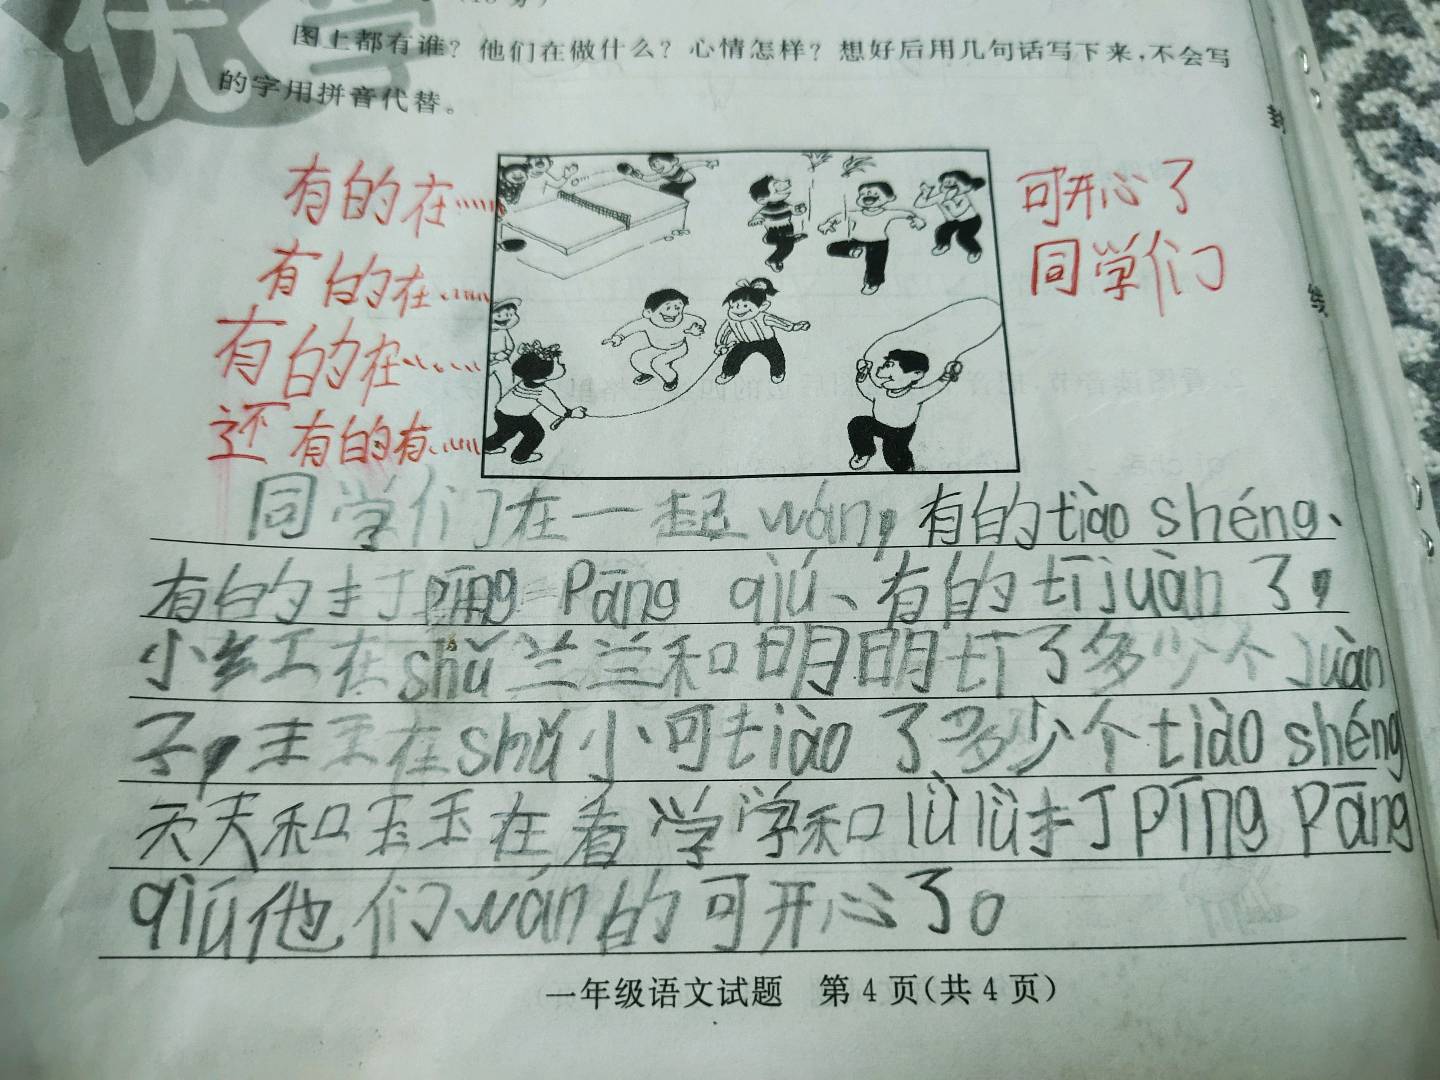 优学
图上都有谁？他们在做什么？心情怎样？想好后用几句话写下来，不会写
的字用拼音代替。
有的在……
有的在……
有的在……
还有的有……
可开心了
同学们
同学们在一起wán，有的tiào shéng、
有的打pīng Pāng qiú、有的tī juàn了，
小红在shǔ兰兰和明明tī了多少个juàn
了，王王在shǔ小可tiào了多少个tiào shéng
天天和玉玉在看学学和lǜ lǜ打Pīng Pāng
qiú他们wán的可开心了。
一年级语文试题 第4页(共4页)
封
线